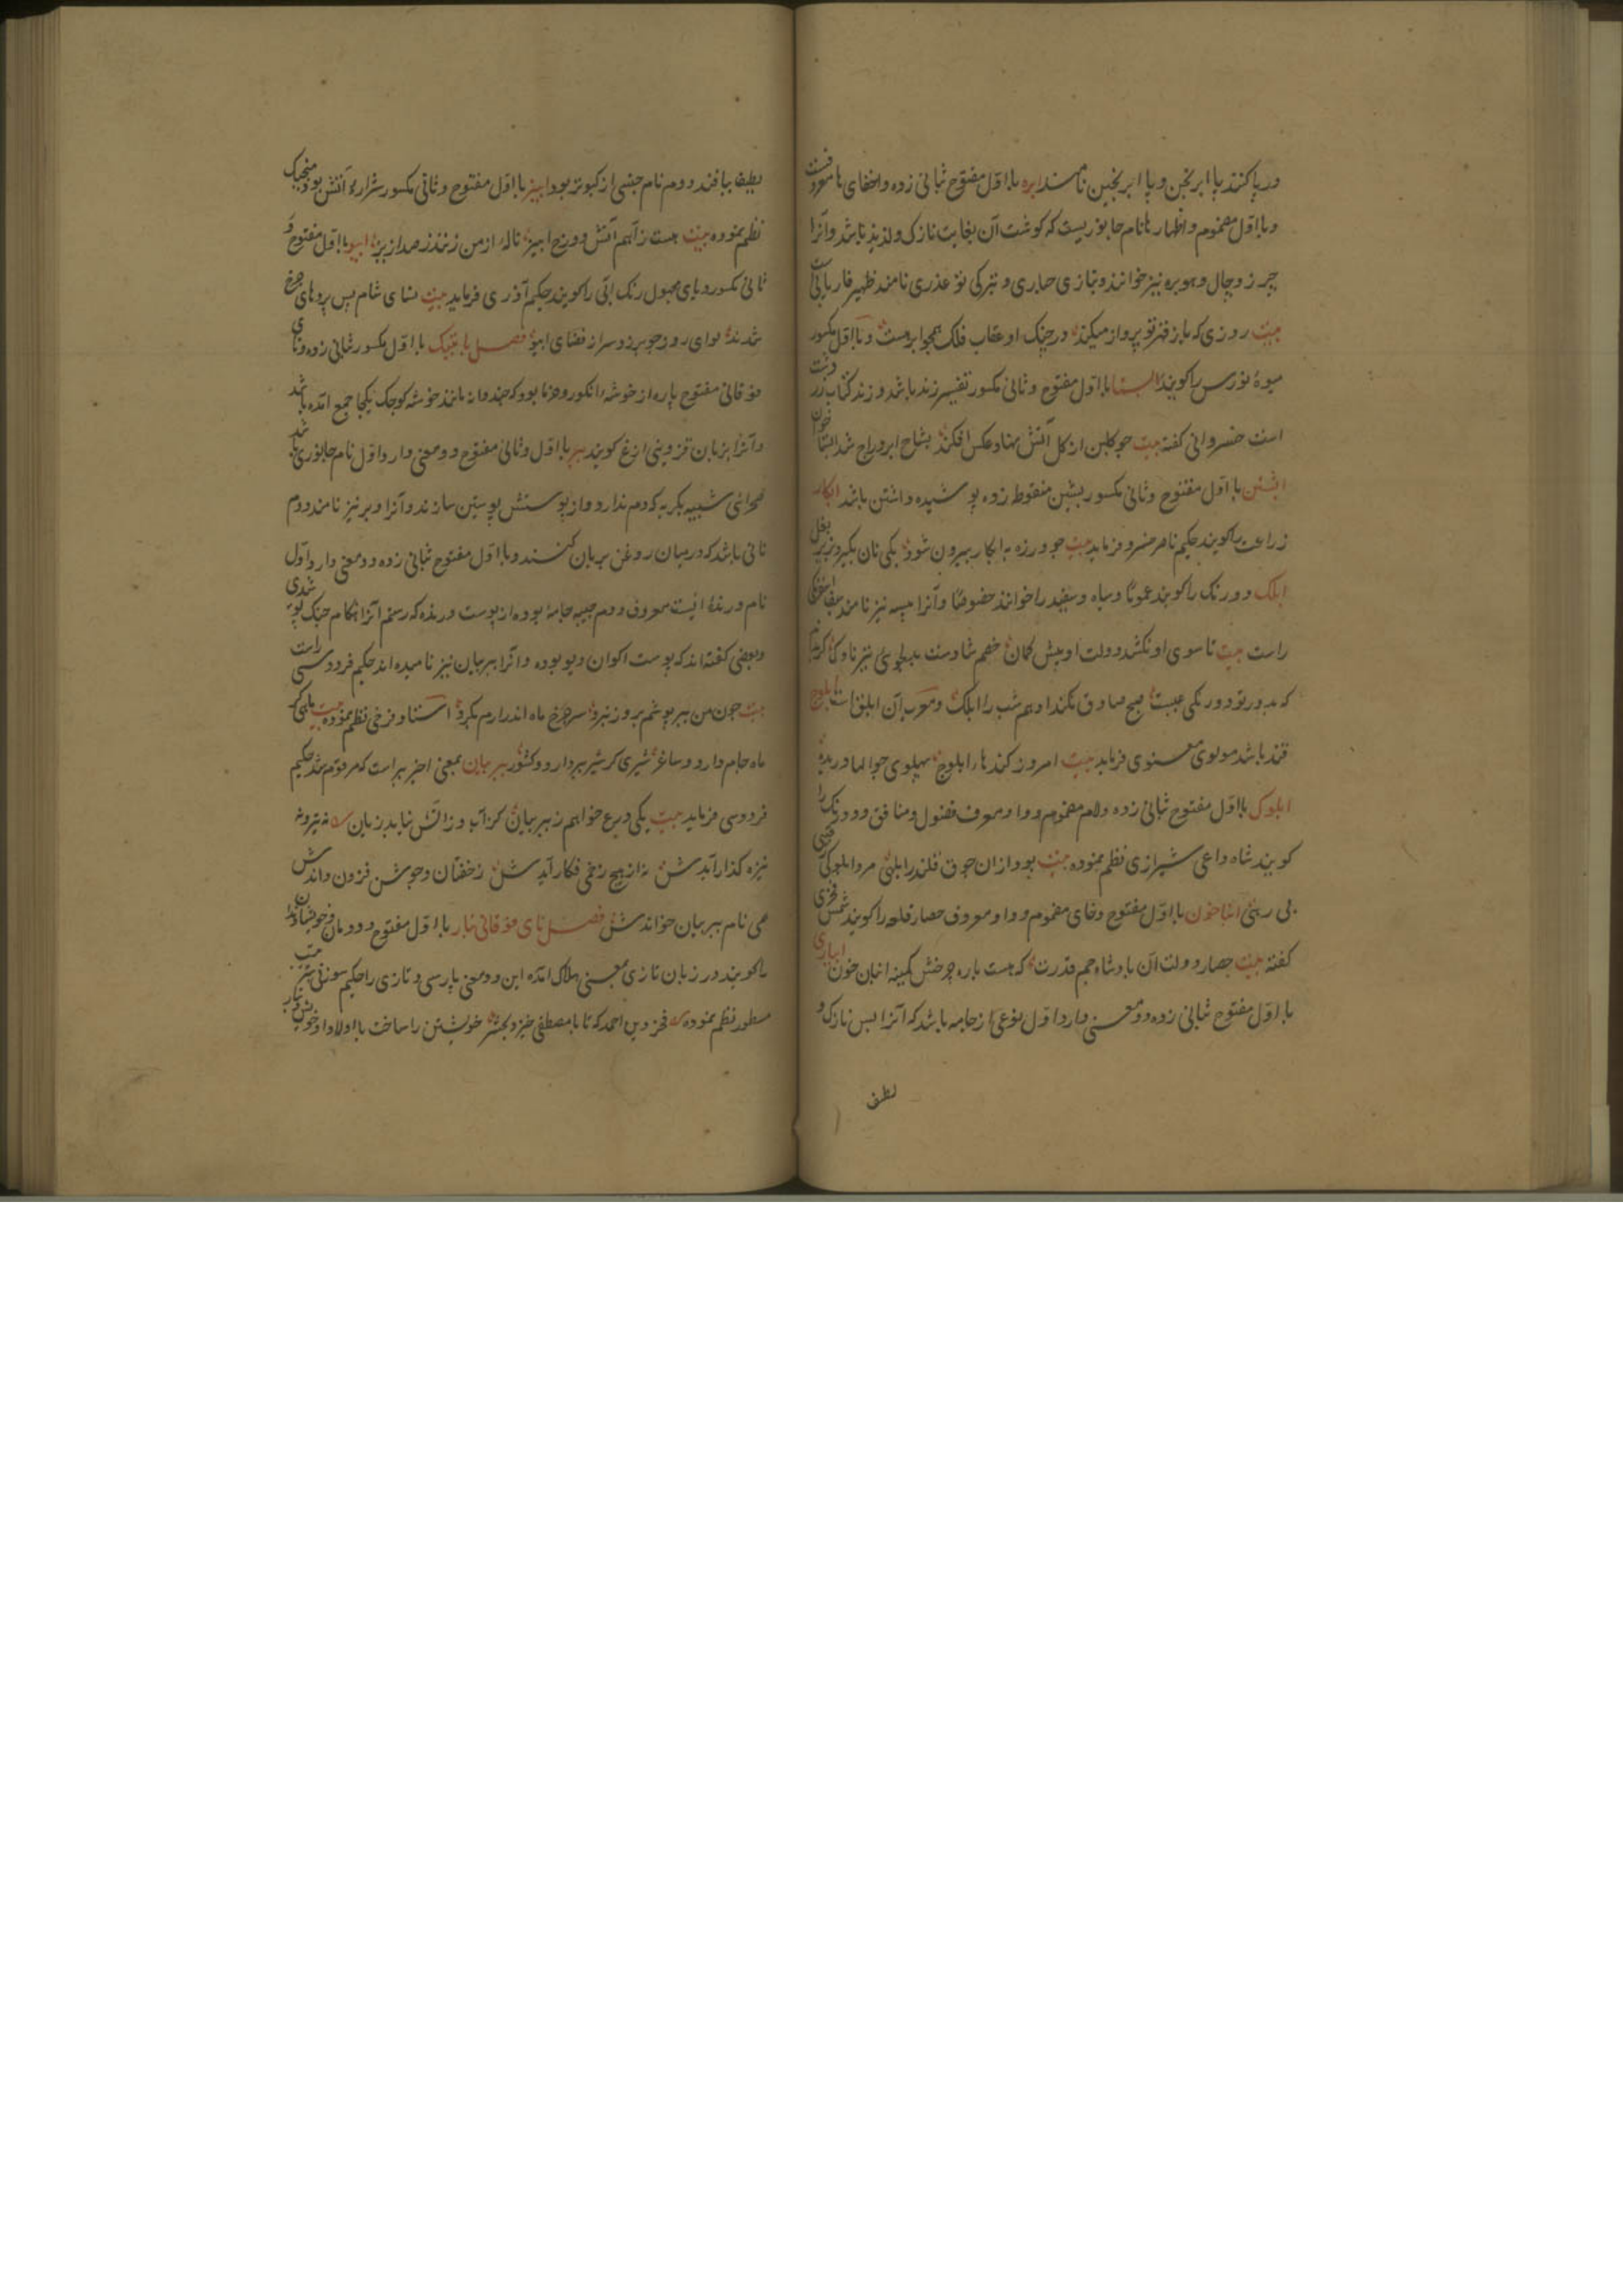 در پا کنند پا ابرنجن و پا ابرنجین نامند ابره بااوّل مفتوح بثانی زده واخفای ها معروفست
وبااوّل مضموم واظهار ها نام جانوریست که کوشت آن بغایت نازک ولذیذ باشد وآنرا
چرز وچال وهوبره نیز خوانند وبتازی حباری وبترکی توغدری نامند ظهیر فاریابی
بیت روزی که باز قهر تو پرواز میکند در چنک او عقاب فلک همچو ابره است وبااوّل مکسور
میوهٔ نورس راکویند ابستا بااوّل مفتوح وثانی مکسور تفسیر زند باشد وزند کتاب زردشت
است خسروانی کفته بیت چو کلبن از کل آتش نهاد وعکس افکند بشاخ ابر دراج شد ابستا خوان
ابشتن بااوّل مفتوح وثانی مکسور بشین منقوط زده پوشیده داشتن باشد ابکار
زراعت راکویند حکیم ناصر خسرو فرماید بیت چو ورزه به ابکار بیرون شود یکی نان بکیرد بزیر بغل
ابلک دورنک راکویند عموما وسیاه وسفید راخوانند خصوصا وآنرا پیسه نیز نامند
راست بیت تا سوی او نکشد دولت او پیش کمان خصم شادست
که بدور تو دو رنکی عیبست صبح صادق نکند ادهم شب را ابلک ومعرب آن ابلق است ابلوج
قند باشد مولوی معنوی فرماید بیت امروز کند ها ابلوج پهلوی جوالها دریده
ابلوک بااوّل مفتوح بثانی زده ولام مضموم وواو معروف فضول ومنافق ودورنک را
کویند شاه داعی شیرازی نظم نموده بیت بود ازان جوق قلندر ابلهی مرد ابلوکی
بی رهی انباخون بااوّل مفتوح وخای مضموم وواو معروف حصار قلعه راکویند شمس فخری
کفته بیت حصار دولت آن پادشاه جم قدرت که هست باره چرخش کمینه انباخون ابیاری
بااوّل مفتوح بثانی زده دو معنی دارد اوّل نوعی از جامه باشد که آنرا بس نازک و
لطیف
لطیف ببافند دوم نام جنسی از کبوتر بود ابیز بااوّل مفتوح وثانی مکسور شرارهٔ آتش بود منجیک
نظم نموده بیت هست ز آهم آتش دوزخ ابیز ناله از من زندز رعد ابیو بااوّل مفتوح و
ثانی مکسور ویای مجهول رنک آبی راکویند حکیم آذری فرماید بیت
شدند لوای روز چو بر زد سر از فضای ابیو فصل با بتیک بااوّل مکسور ثانی زده وتای
فوقانی مفتوح پاره از خوشهٔ انکور وخرما بود که چند دانه مانند خوشه کوچک یکجا جمع آمده باشد
وآنرا بزبان قزوینی ازغ کویند ببر بااوّل وثانی مفتوح دو معنی دارد اوّل نام جانوری باشد
صحرائی شبیه بکربه که دم ندارد واز پوستش پوستین سازند وآنرا وبر نیز نامند دوم
نانی باشد که در میان روغن بریان کنند وبااوّل مفتوح بثانی زده دو معنی دارد اوّل
نام درنده ایست معروف دوم جیبه جامهٔ بوده از پوست درنده که رستم آنرا هنکام جنک پوشیدی
وبعضی کفته اند که پوست اکوان دیو بوده وآنرا ببر بیان نیز نامیده اند حکیم فردوسی راست
بیت چون من ببر پوشم بروز نبرد سر چرخ ماه اندر ارم بکرد استاد فرخی نظم نموده بیت
ماه جام دارد وساغر شیری کر شیر ببر دارد وکشور ببر بیان بمعنی اخیر ببر است که مرقوم شد حکیم
فردوسی فرماید بیت یکی درع خواهم ز ببر بیان کز آب وز آتش نیابد زیان نه تیر ونه
نیزه کذار آیدش نه از هیچ زخمی فکار آیدش ز خفتان وجوشن فزون داندش
همی نام ببر بیان خواندش فصل تای فوقانی تبار بااوّل مفتوح دودمان وخویشاوندان
راکویند در زبان تازی بمعنی هلاک آمده این دو معنی پارسی وتازی راحکیم سوزنی بترتیب
مسطور نظم نموده فخر دین احمد که تا با مصطفی خیزد بحشر خویشتن را ساخت با اولاد او خویش وتبار